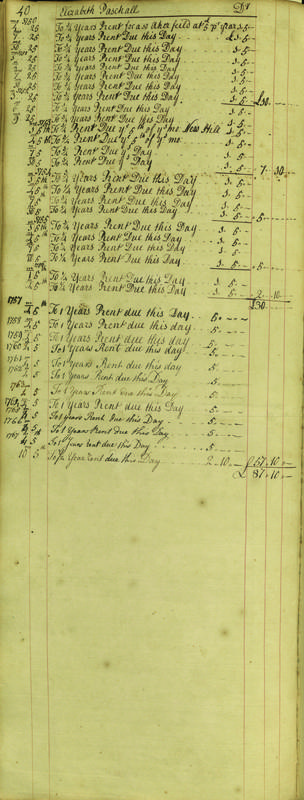 40 Elizabeth Paschall Dr
1750
25 To ¼ Years Rent for an acher field at £5 pr year 1..5
25 To ¼ Years Rent Due this Day 1..5
25 To ¼ Years Rent Due this Day 1..5
25 To ¼ Years Rent Due this Day 1..5
25 To ¼ Years Rent Due this Day 1..5
25 To ¼ Years Rent Due this Day 1..5
25 To ¼ Years Rent Due this Day 1..5
25 To ¼ Years Rent Due this Day
25 To ¼ Years Rent Due this Day
To ¼ Rent Due ye 5th of ye mo New Stile 1..5
To ¼ Rent Due ye 5th of ye mo 1..5
5 To ¼ Rent Due ys Day 1..5
5 To ¼ Rent Due ys Day 1..5
1754
To ¼ Years Rent Due this Day 1..5
To ¼ Years Rent Due this Day 1..5
To ¼ Years Rent Due this Day 1..5
To ¼ Years Rent Due this Day 1..5 5
1755
To ¼ Years Rent Due this Day 1..5
To ¼ Years Rent Due this Day 1..5
To ¼ Years Rent Due this Day 1..5
To ¼ Years Rent Due this Day 1..5 5
To ¼ Years Rent Due this Day 1..5
To ¼ Years Rent Due this Day 1..5 2..10
£30
1757 5 To 1 Years Rent due this Day 5
1758 5 To 1 Years Rent due this day 5
1759 5 To 1 Years Rent due this day
1760 5 To 1 years Rent due this day 5
1761 5 To 1 years Rent due this day 5
1762 5 To 1 years Rent due this Day 5
1763 5 To 1 years Rent due this Day 5
5 To 1 Years Rent due this Day 5
5 To 1 years Rent due this Day 5
5 To 1 years Rent due this Day 5
1767 5 To 1 years Rent due this Day 5
10 5 To ½ Year Rent due this Day 2..10 £57..10
£87..10